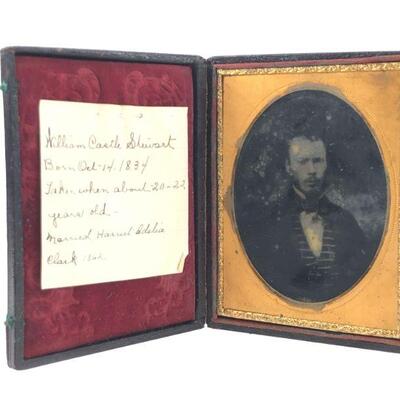 William Castle Stewart
Born Oct-14, 1834
Taken when about-20-22
years old-
Married Harriet Adelia
Clark